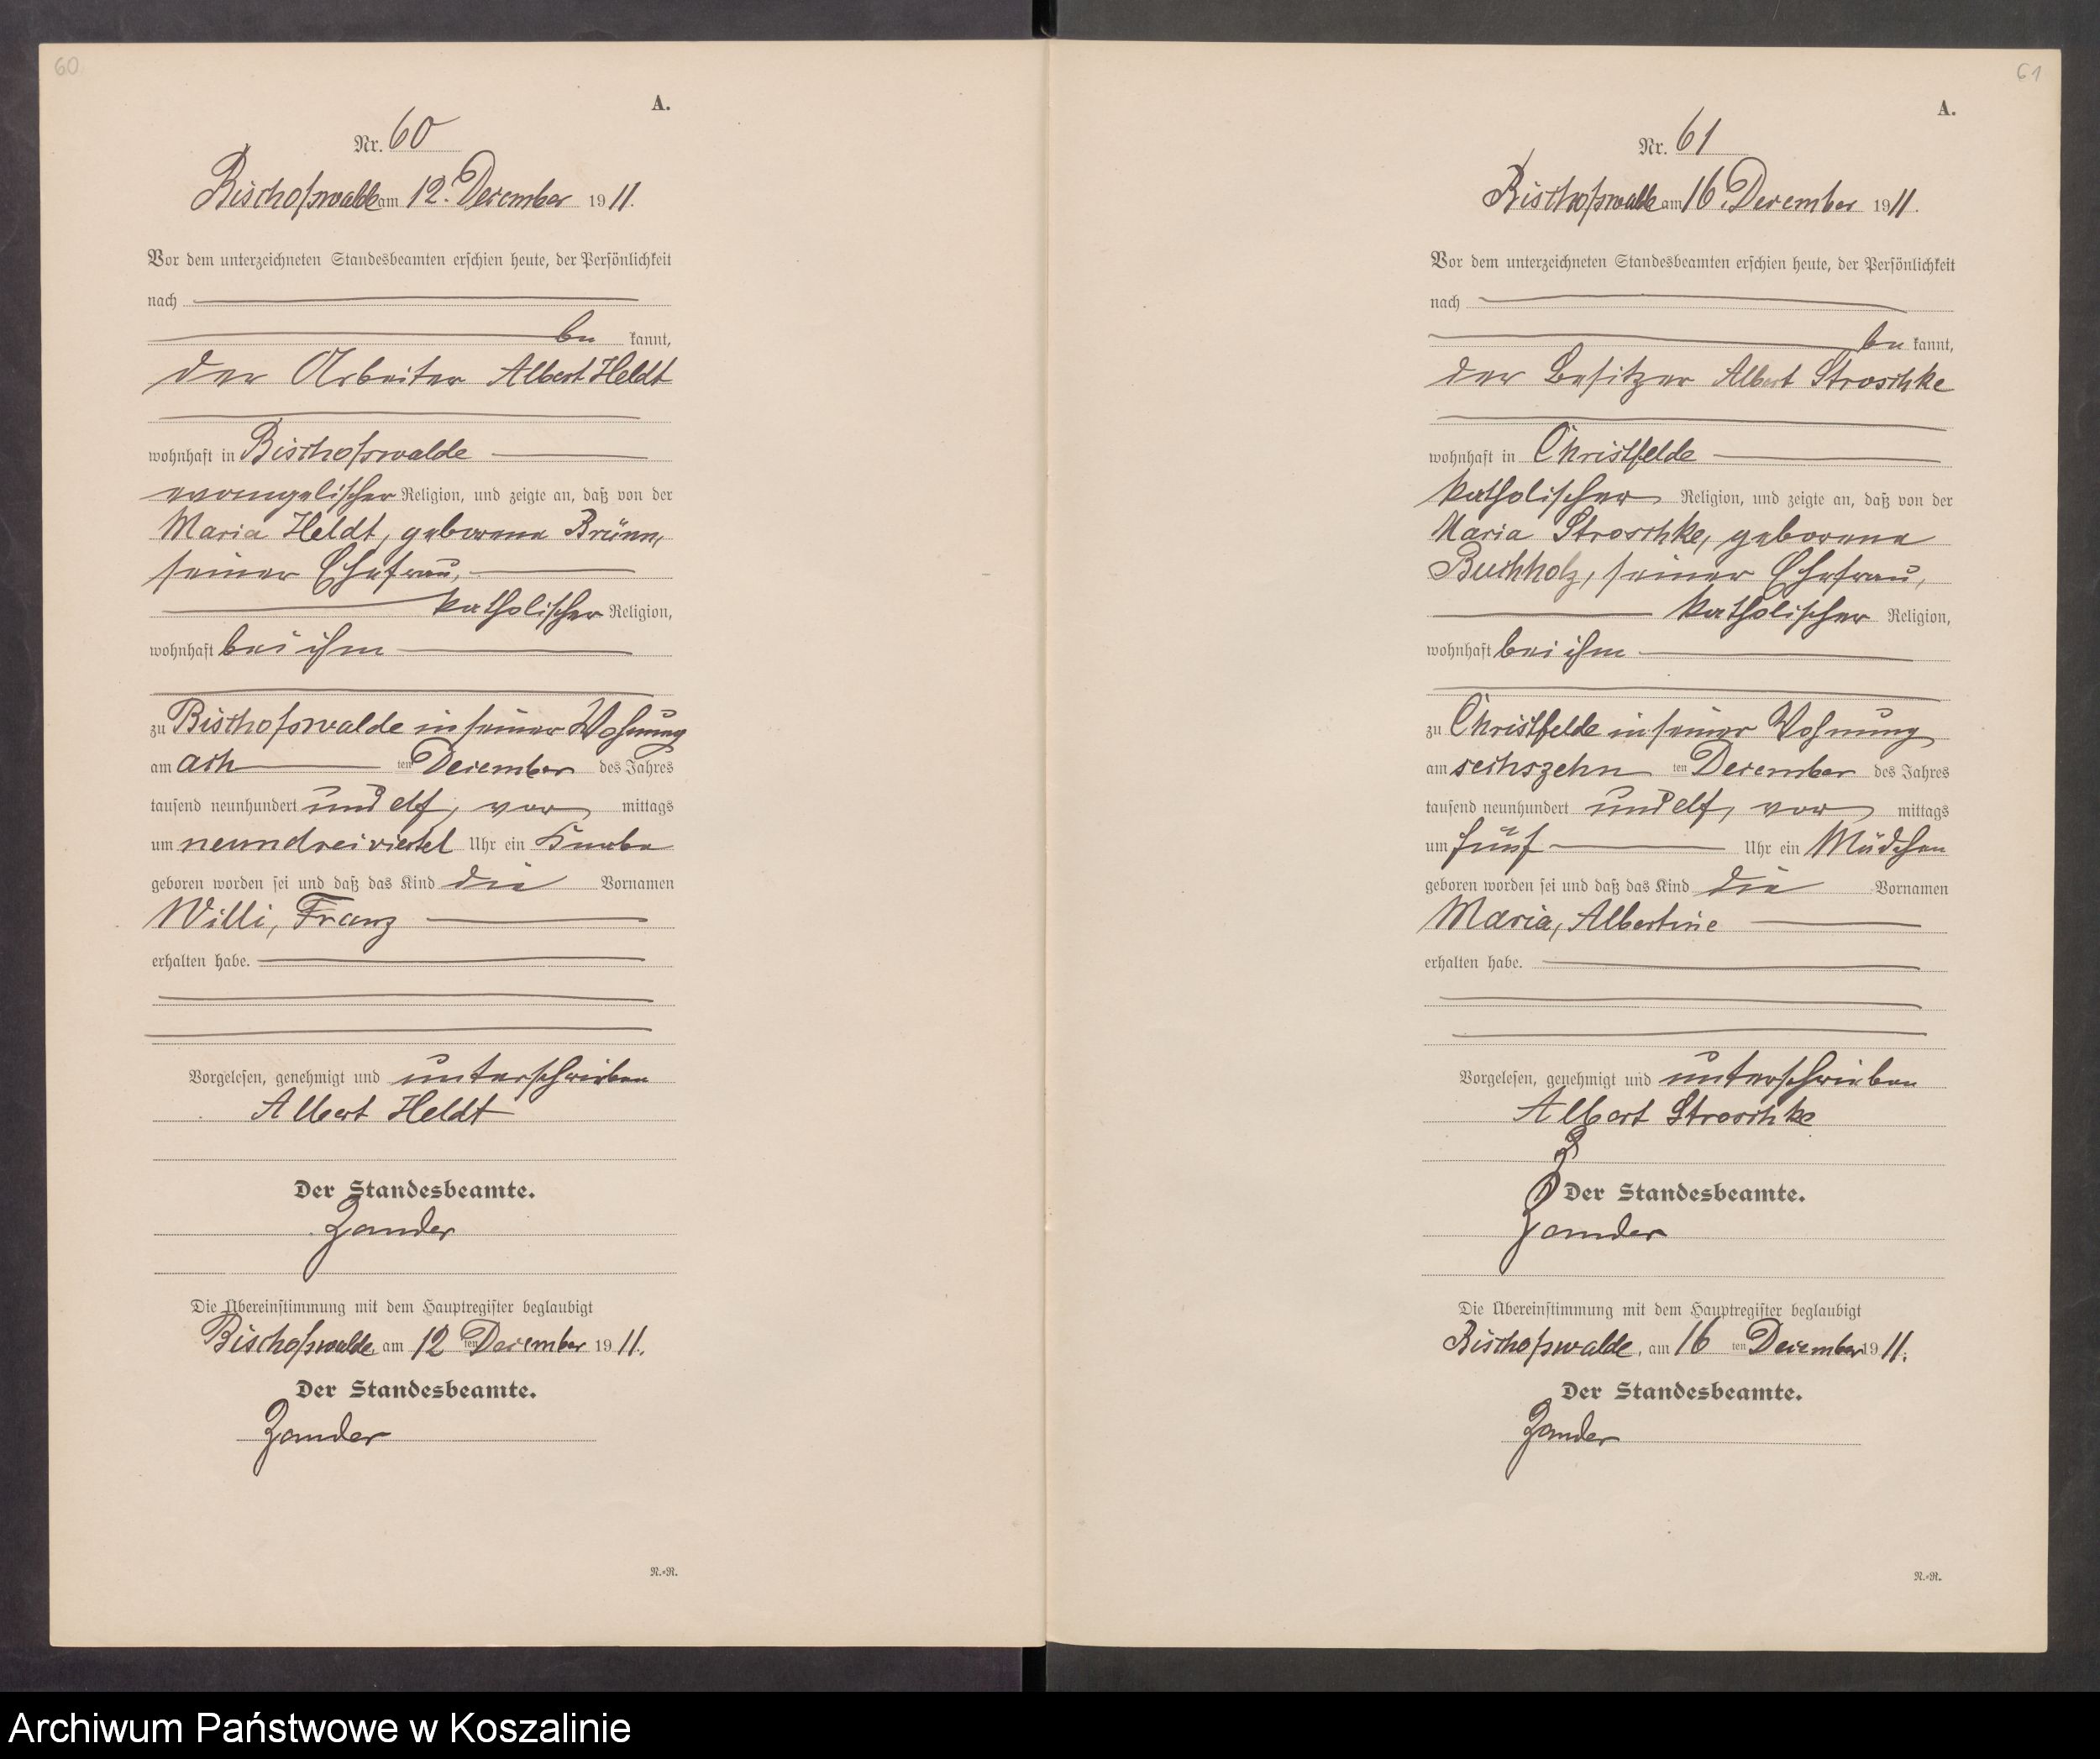 60
A.
Nr. 60
Bischofswalde am 12. December 1911.
Vor dem unterzeichneten Standesbeamten erschien heute, der Persönlichkeit
nach
be kannt,
der Arbeiter Albert Heldt
wohnhaft in Bischofswalde
evangelischer Religion, und zeigte an, daß von der
Maria Heldt, geborene Brünn,
seiner Ehefrau,
katholischer Religion,
wohnhaft bei ihm
zu Bischofswalde in seiner Wohnung
am ach ten December des Jahres
tausend neunhundert und elf, vor mittags
um neundreiviertel Uhr ein Knabe
geboren worden sei und daß das Kind die Vornamen
Willi, Franz
erhalten habe.
Vorgelesen, genehmigt und unterschrieben
Albert Heldt
Der Standesbeamte.
Zander
Die Übereinstimmung mit dem Hauptregister beglaubigt
Bischofswalde, am 12 ten December 1911.
Der Standesbeamte.
Zander
N.-N.
61
A.
Nr. 61
Bischofswalde am 16. December 1911.
Vor dem unterzeichneten Standesbeamten erschien heute, der Persönlichkeit
nach
be kannt,
der Besitzer Albert Stroschke
wohnhaft in Christfelde
katholischer Religion, und zeigte an, daß von der
Maria Stroschke, geborene
Buchholz, seiner Ehefrau,
katholischer Religion,
wohnhaft bei ihm
zu Christfelde in seiner Wohnung
am sechszehn ten December des Jahres
tausend neunhundert und elf, vor mittags
um fünf Uhr ein Mädchen
geboren worden sei und daß das Kind die Vornamen
Maria, Albertine
erhalten habe.
Vorgelesen, genehmigt und unterschrieben
Albert Stroschke
Der Standesbeamte.
Zander
Die Übereinstimmung mit dem Hauptregister beglaubigt
Bischofswalde, am 16 ten December 1911.
Der Standesbeamte.
Zander
N.-N.
Archiwum Państwowe w Koszalinie